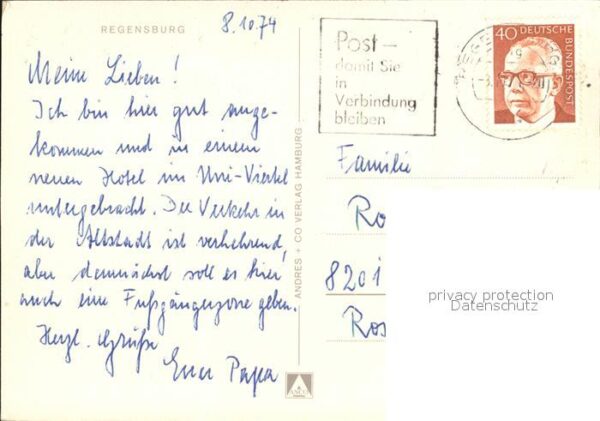 REGENSBURG
8.10.74
Meine Lieben!
Ich bin hier gut ange-
kommen und in einem
neuen Hotel im Uni-Viertel
untergebracht. Der Verkehr in
der Altstadt ist verheerend,
aber demnächst soll es hier
auch eine Fußgängerzone geben.
Herzl. Grüße
Euer Papa
ANDRES + CO VERLAG HAMBURG
Post –
damit Sie
in
Verbindung
bleiben
40
DEUTSCHE
BUNDESPOST
Familie
Ro
8201
Ros
privacy protection
Datenschutz